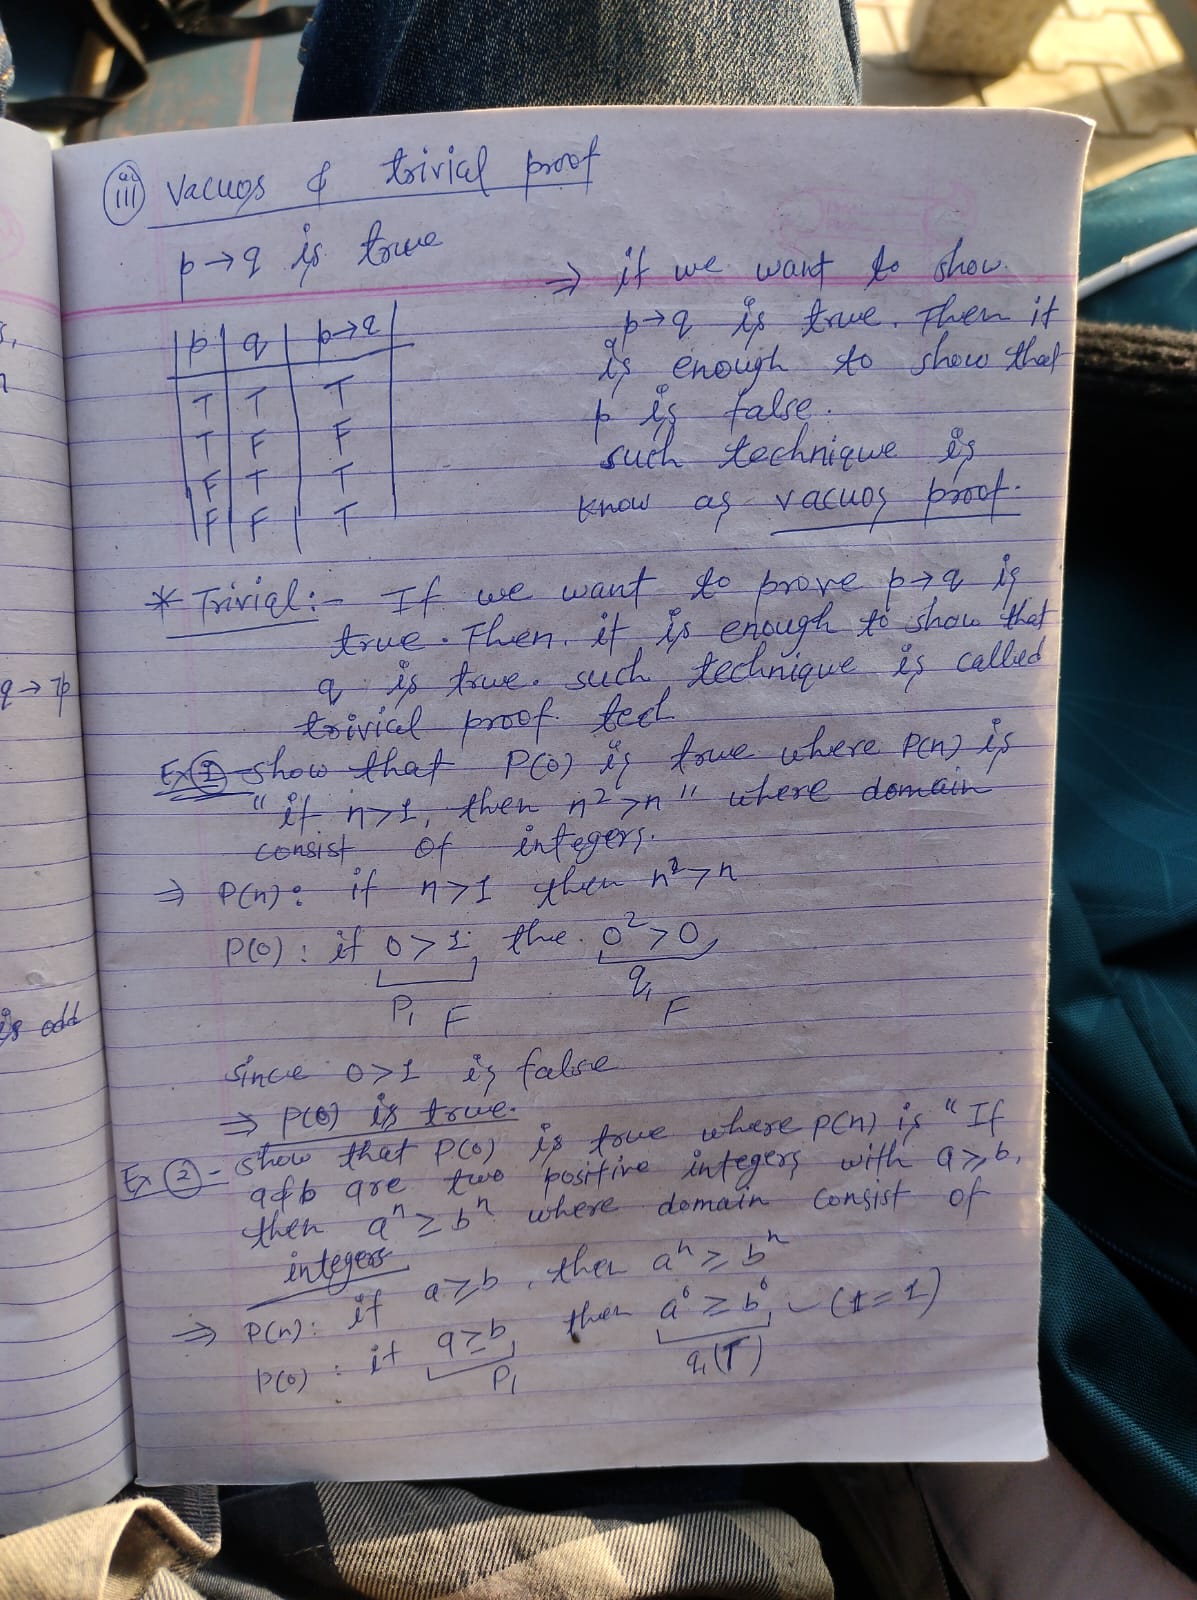 (iii) Vacuos & trivial proof
p→q is true
p q p→q
T T T
T F F
F T T
F F T
⇒ if we want to show
p→q is true. Then it
is enough to show that
p is false.
such technique is
know as vacuos proof.
* Trivial:- If we want to prove p→q is
true. Then it is enough to show that
q is true. such technique is called
trivial proof tech
Ex (1) - show that P(0) is true where P(n) is
"if n>1, then n²>n" where domain
consist of integers.
⇒ P(n): if n>1 then n²>n
P(0): if 0>1, the 0²>0,
P₁ F q₁ F
Since 0>1 is false
⇒ P(0) is true.
Ex (2) - show that P(0) is true where P(n) is "If
a&b are two positive integers with a≥b,
then aⁿ≥bⁿ where domain consist of
integers
⇒ P(n): if a≥b, then aⁿ≥bⁿ
P(0): if a≥b, then a⁰≥b⁰, - (1=1)
P₁ q₁(T)
q→7p
is odd